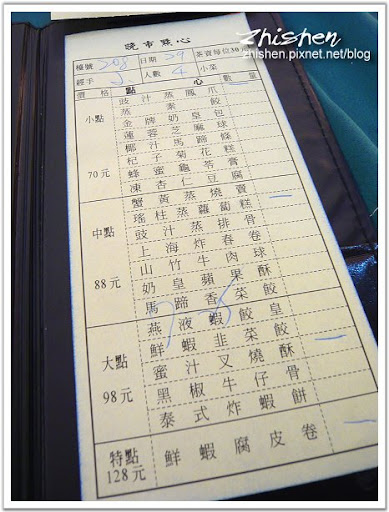 Zhishen
zhishen.pixnet.net/blog
晚市點心
檯號 208 日期 29 茶資每位30元
經手 人數 4 小菜
價格 點心 數量
小點 70元
豉汁蒸鳳爪
蒸素餃
金牌奶皇包
蓮蓉芝麻球
椰汁馬蹄條
杞子菊花糕
蜂蜜龜苓膏
凍杏仁豆腐
中點 88元
蟹黃蒸燒賣 一
瑤柱蒸蘿蔔糕
豉汁蒸排骨
上海炸春卷
山竹牛肉球
奶皇蘋果酥
馬蹄香菜餃
大點 98元
燕液蝦餃皇
鮮蝦韭菜餃 一
蜜汁叉燒酥
黑椒牛仔骨
泰式炸蝦餅
特點 128元
鮮蝦腐皮卷 一